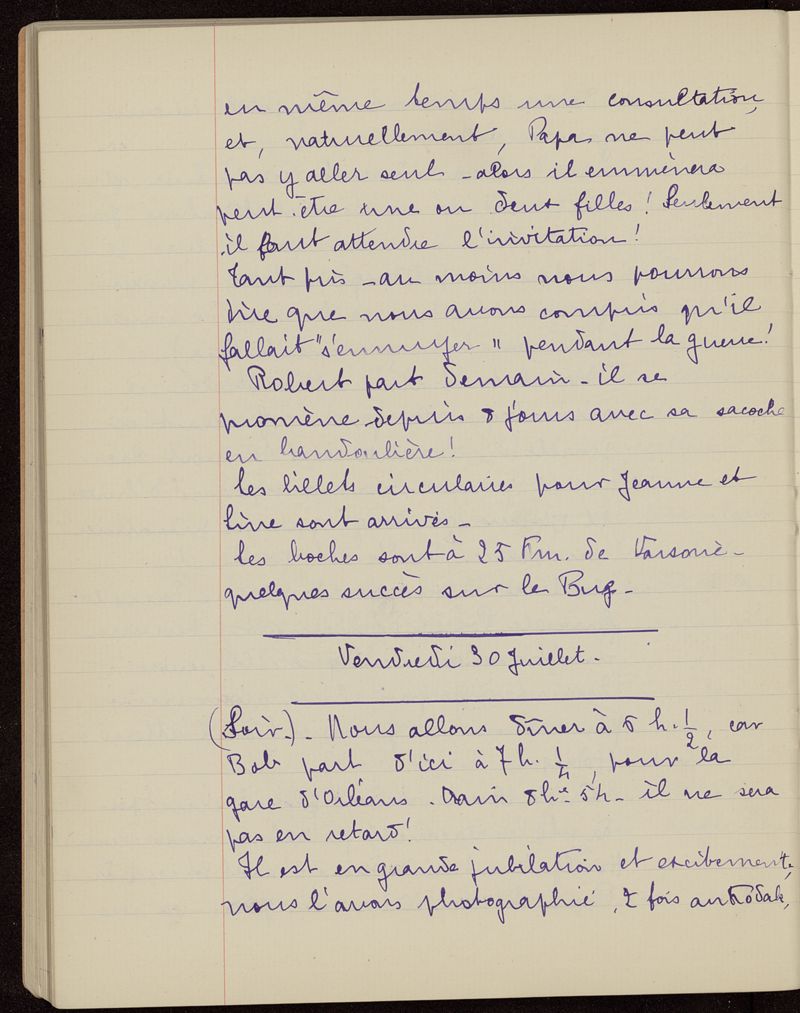 en même temps une consultation,
et, naturellement, Papa ne peut
pas y aller seul - alors il emmènera
peut-être une ou deux filles ! Seulement
il faut attendre l'invitation !
Tant pis - au moins nous pourrons
dire que nous avons compris qu'il
fallait "s'ennuyer" pendant la guerre !
Robert part demain - il se
promène depuis 8 jours avec sa sacoche
en bandoulière !
Les billets circulaires pour Jeanne et
Line sont arrivés -
Les boches sont à 25 Km. de Varsovie -
quelques succès sur le Bug -
Vendredi 30 Juillet.
(Soir.) - Nous allons dîner à 6 h. 1/2, car
Bob part d'ici à 7 h. 1/4, pour la
gare d'Orléans. Train 8h 54 - il ne sera
pas en retard !
Il est en grande jubilation et excitement,
nous l'avons photographié, 2 fois au Kodak,